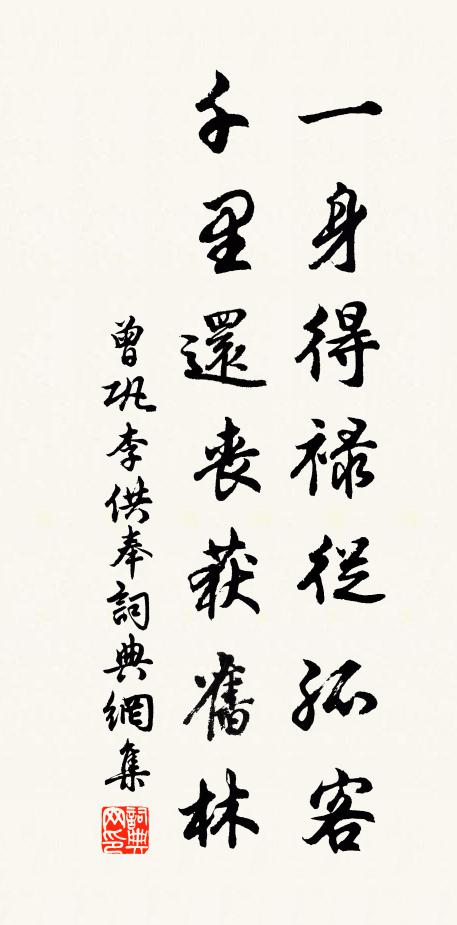 一身得祿從孤客
千里還喪荻舊林
曾巩李供奉詞典網集
詞典网印